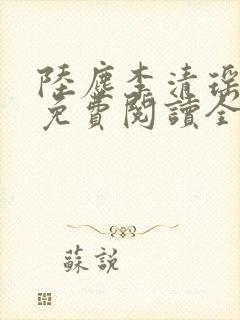 陸塵李清瑤
免費閱讀全
蘇說